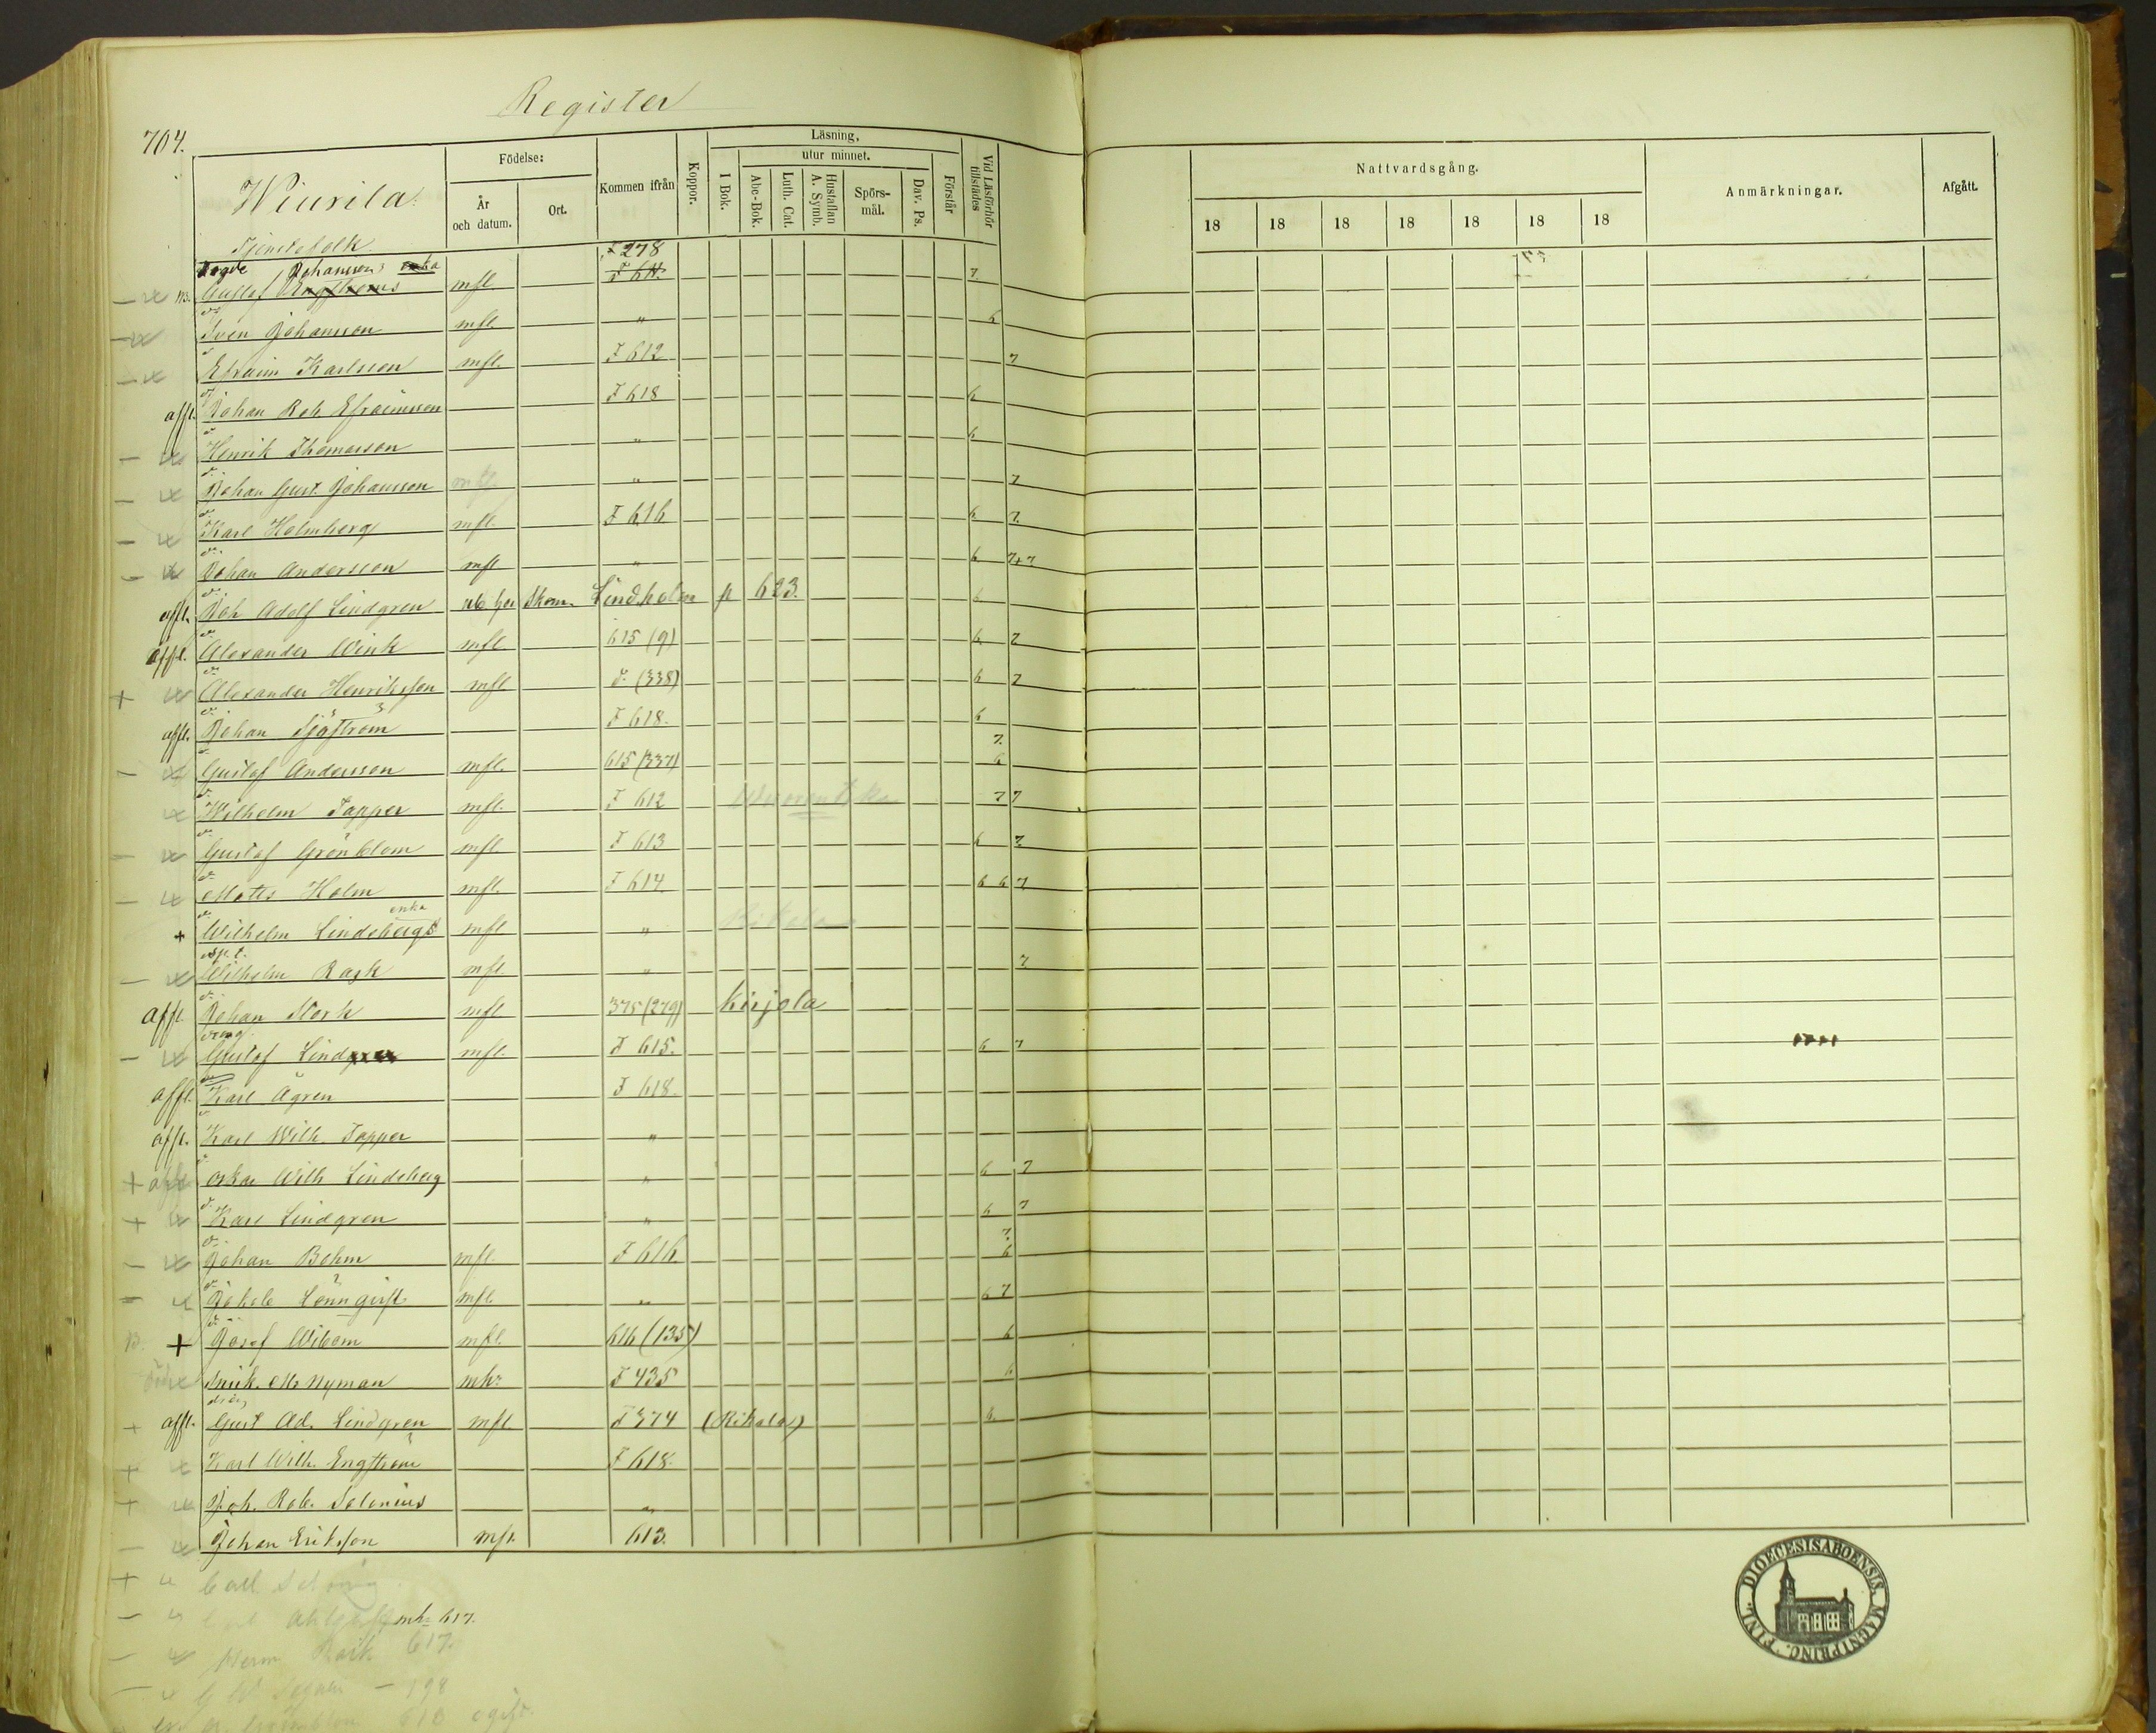 Register
704.
Wiurila.
Födelse:
År
och datum.
Ort.
Kommen ifrån
Koppor.
Läsning,
utur minnet.
I Bok.
Abc-Bok.
Luth. Cat.
Hustaflan
A. Symb.
Spörs-
mål.
Dav. Ps.
Förstår
Vid Läsförhör
tillstädes
Nattvardsgång.
18 18 18 18 18 18 18
Anmärkningar.
Afgått.
Tjenstefolk
F 278
Johansson enka
Gustaf Engströms mfl. F 611. 7.
Sven Johansson mfl. " 6
Efraim Karlsson mfl. F 612 7
affl. Johan Rob Efraimsson F 618 6
Henrik Thomasson " 6
Johan Gust. Johansson mfl. " 7
Karl Holmberg mfl. F 616 6 7.
Johan Andersson mfl " 6 7+7
affl. Joh Adolf Lindgren Lindholm 623. 6
affl. Alexander Wink mfl. 615 (9) 6 7
+ Alexander Henriksson mfl d:o (338) 6 7
affl. Johan Sjöström F 618. 6
7.
Gustaf Andersson mfl. 615 (337) 6
Wilhelm Tapper mfl. F 612 7 7
Gustaf Grönblom mfl F 613 6 7
Matts Holm mfl. F 614. 6 6 7
enka
+ Wilhelm Lindebergs mfl " Rikala
Wilhelm Rask mfl. " 7
affl. Johan Stark mfl 375 (279) Kirjola
dräng
Gustaf Lindgren mfl. F 615. 6 7
affl. Karl Ågren F 618.
affl. Karl Wilh. Tapper "
+ affl Oskar Wilh Lindeberg " 6 7
+ Karl Lindgren " 6 7
7.
Johan Bohm mfl. F 616. 6
Jakob Lönnqvist mfl. " 6 7
+ Josef Wibom mfl. 616 (135) 6
Snick. M. Nyman mh: F 435 6
dräng
+ affl. Gust Ad. Lindgren mfl. F 374 (Rikala) 6.
+ Karl Wilh. Engström F 618.
+ Joh. Rob. Salenius "
Johan Eriksson mfl. 613.
+ Carl
mh: 617.
Herm Rask 617.
198
Grönblom 613
FINL. DIOECESIS ABOENSIS. MAGNI PRINC.